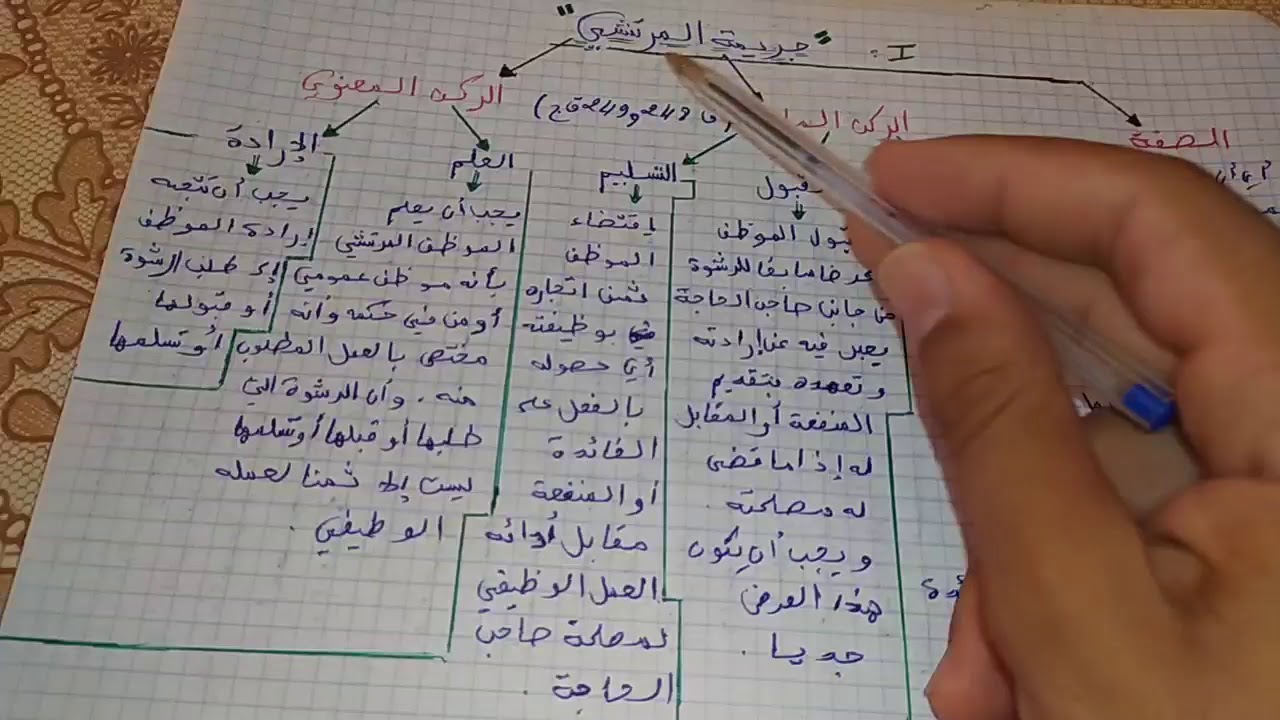 I. "جريمة المرتشي"
الصفة
الركن
(ف 248 و249 ق ج)
الركن المعنوي
قبول
قبول الموظف
عرضا صابقا للرشوة
من جانب صاحب الحاجة
يعبر فيه عن إرادته
وتعهده بتقديم
المنفعة أو المقابل
له إذا ما قضى
له مصلحته.
ويجب أن يكون
هذا العرض
جديا.
التسليم
إقتضاء
الموظف
ثمن اتجاره
بوظيفته
أي حصوله
بالفعل على
الفائدة
أو المنفعة
مقابل أدائه
العمل الوظيفي
لمصلحة صاحب
الحاجة.
العلم
يجب أن يعلم
الموظف المرتشي
بأنه موظف عمومي
أو من في حكمه وأنه
مختص بالعمل المطلوب
منه. وأن الرشوة التي
طلبها أو قبلها أو تسلمها
ليست إلا ثمنا لعمله
الوظيفي.
الإرادة
يجب أن تتجه
إرادة الموظف
إلى طلب الرشوة
أو قبولها
أو تسلمها